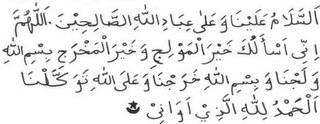 اَلسَّلَامُ عَلَيْنَا وَ عَلَى عِبَادِ اللّٰهِ الصَّالِحِيْنَ. اَللّٰهُمَّ
اِنِّى اَسْأَلُكَ خَيْرَ الْمَوْلِجِ وَخَيْرَ الْمَخْرَجِ بِسْمِ اللّٰهِ
وَلَجْنَا وَ بِسْمِ اللّٰهِ خَرَجْنَا وَعَلَى اللّٰهِ تَوَ كَّلْنَا
اَلْحَمْدُ لِلّٰهِ الَّذِيْ اَوَانِيْ